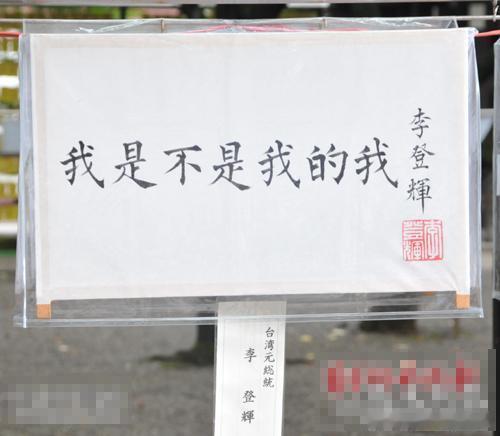 我是不是我的我
李登輝
李登輝
台湾元総統
李登輝